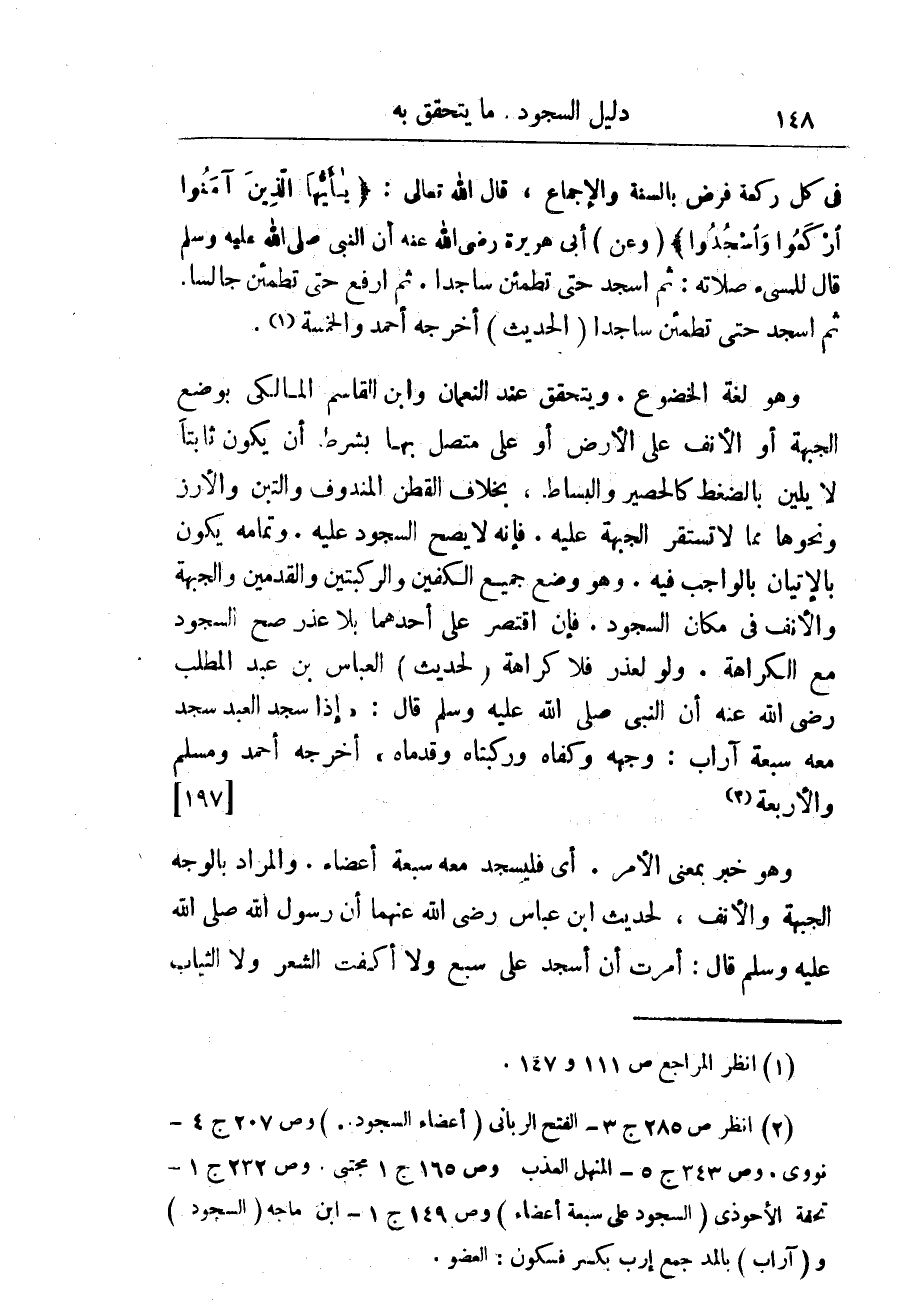 ١٤٨ دليل السجود . ما يتحقق به
فى كل ركعة فرض بالسنة والإجماع ، قال الله تعالى : ﴿ يٰأَيُّهَا الَّذِينَ آمَنُوا
اُرْكَعُوا وَاُسْجُدُوا ﴾ ( وعن ) أبى هريرة رضى الله عنه أن النبى صلى الله عليه وسلم
قال للمسىء صلاته : ثم اسجد حتى تطمئن ساجدا . ثم ارفع حتى تطمئن جالسا .
ثم اسجد حتى تطمئن ساجدا ( الحديث ) أخرجه أحمد والخمسة (١) .
وهو لغة الخضوع . ويتحقق عند النعمان وابن القاسم المالكى بوضع
الجبهة أو الأنف على الأرض أو على متصل بها بشرط أن يكون ثابتاً
لا يلين بالضغط كالحصير والبساط ، بخلاف القطن المندوف والتبن والأرز
ونحوها مما لا تستقر الجبهة عليه . فإنه لا يصح السجود عليه . وتمامه يكون
بالإتيان بالواجب فيه . وهو وضع جميع الكفين والركبتين والقدمين والجبهة
والأنف فى مكان السجود . فإن اقتصر على أحدهما بلا عذر صح السجود
مع الكراهة . ولو لعذر فلا كراهة ( لحديث ) العباس بن عبد المطلب
رضى الله عنه أن النبى صلى الله عليه وسلم قال : « إذا سجد العبد سجد
معه سبعة آراب : وجهه وكفاه وركبتاه وقدماه ، أخرجه أحمد ومسلم
والأربعة (٢) [١٩٧]
وهو خبر بمعنى الأمر . أى فليسجد معه سبعة أعضاء . والمراد بالوجه
الجبهة والأنف ، لحديث ابن عباس رضى الله عنهما أن رسول الله صلى الله
عليه وسلم قال : أمرت أن أسجد على سبع ولا أكفت الشعر ولا الثياب
(١) انظر المراجع ص ١١١ و ١٤٧ .
(٢) انظر ص ٢٨٥ ج ٣ – الفتح الربانى ( أعضاء السجود .. ) وص ٢٠٧ ج ٤ –
نووى . وص ٣٤٣ ج ٥ – المنهل العذب وص ١٦٥ ج ١ مجتبى . وص ٢٣٢ ج ١ –
تحفة الأحوذى ( السجود على سبعة أعضاء ) وص ١٤٩ ج ١ – ابن ماجه ( السجود )
و ( آراب ) بالمد جمع إرب بكسر فسكون : العضو .